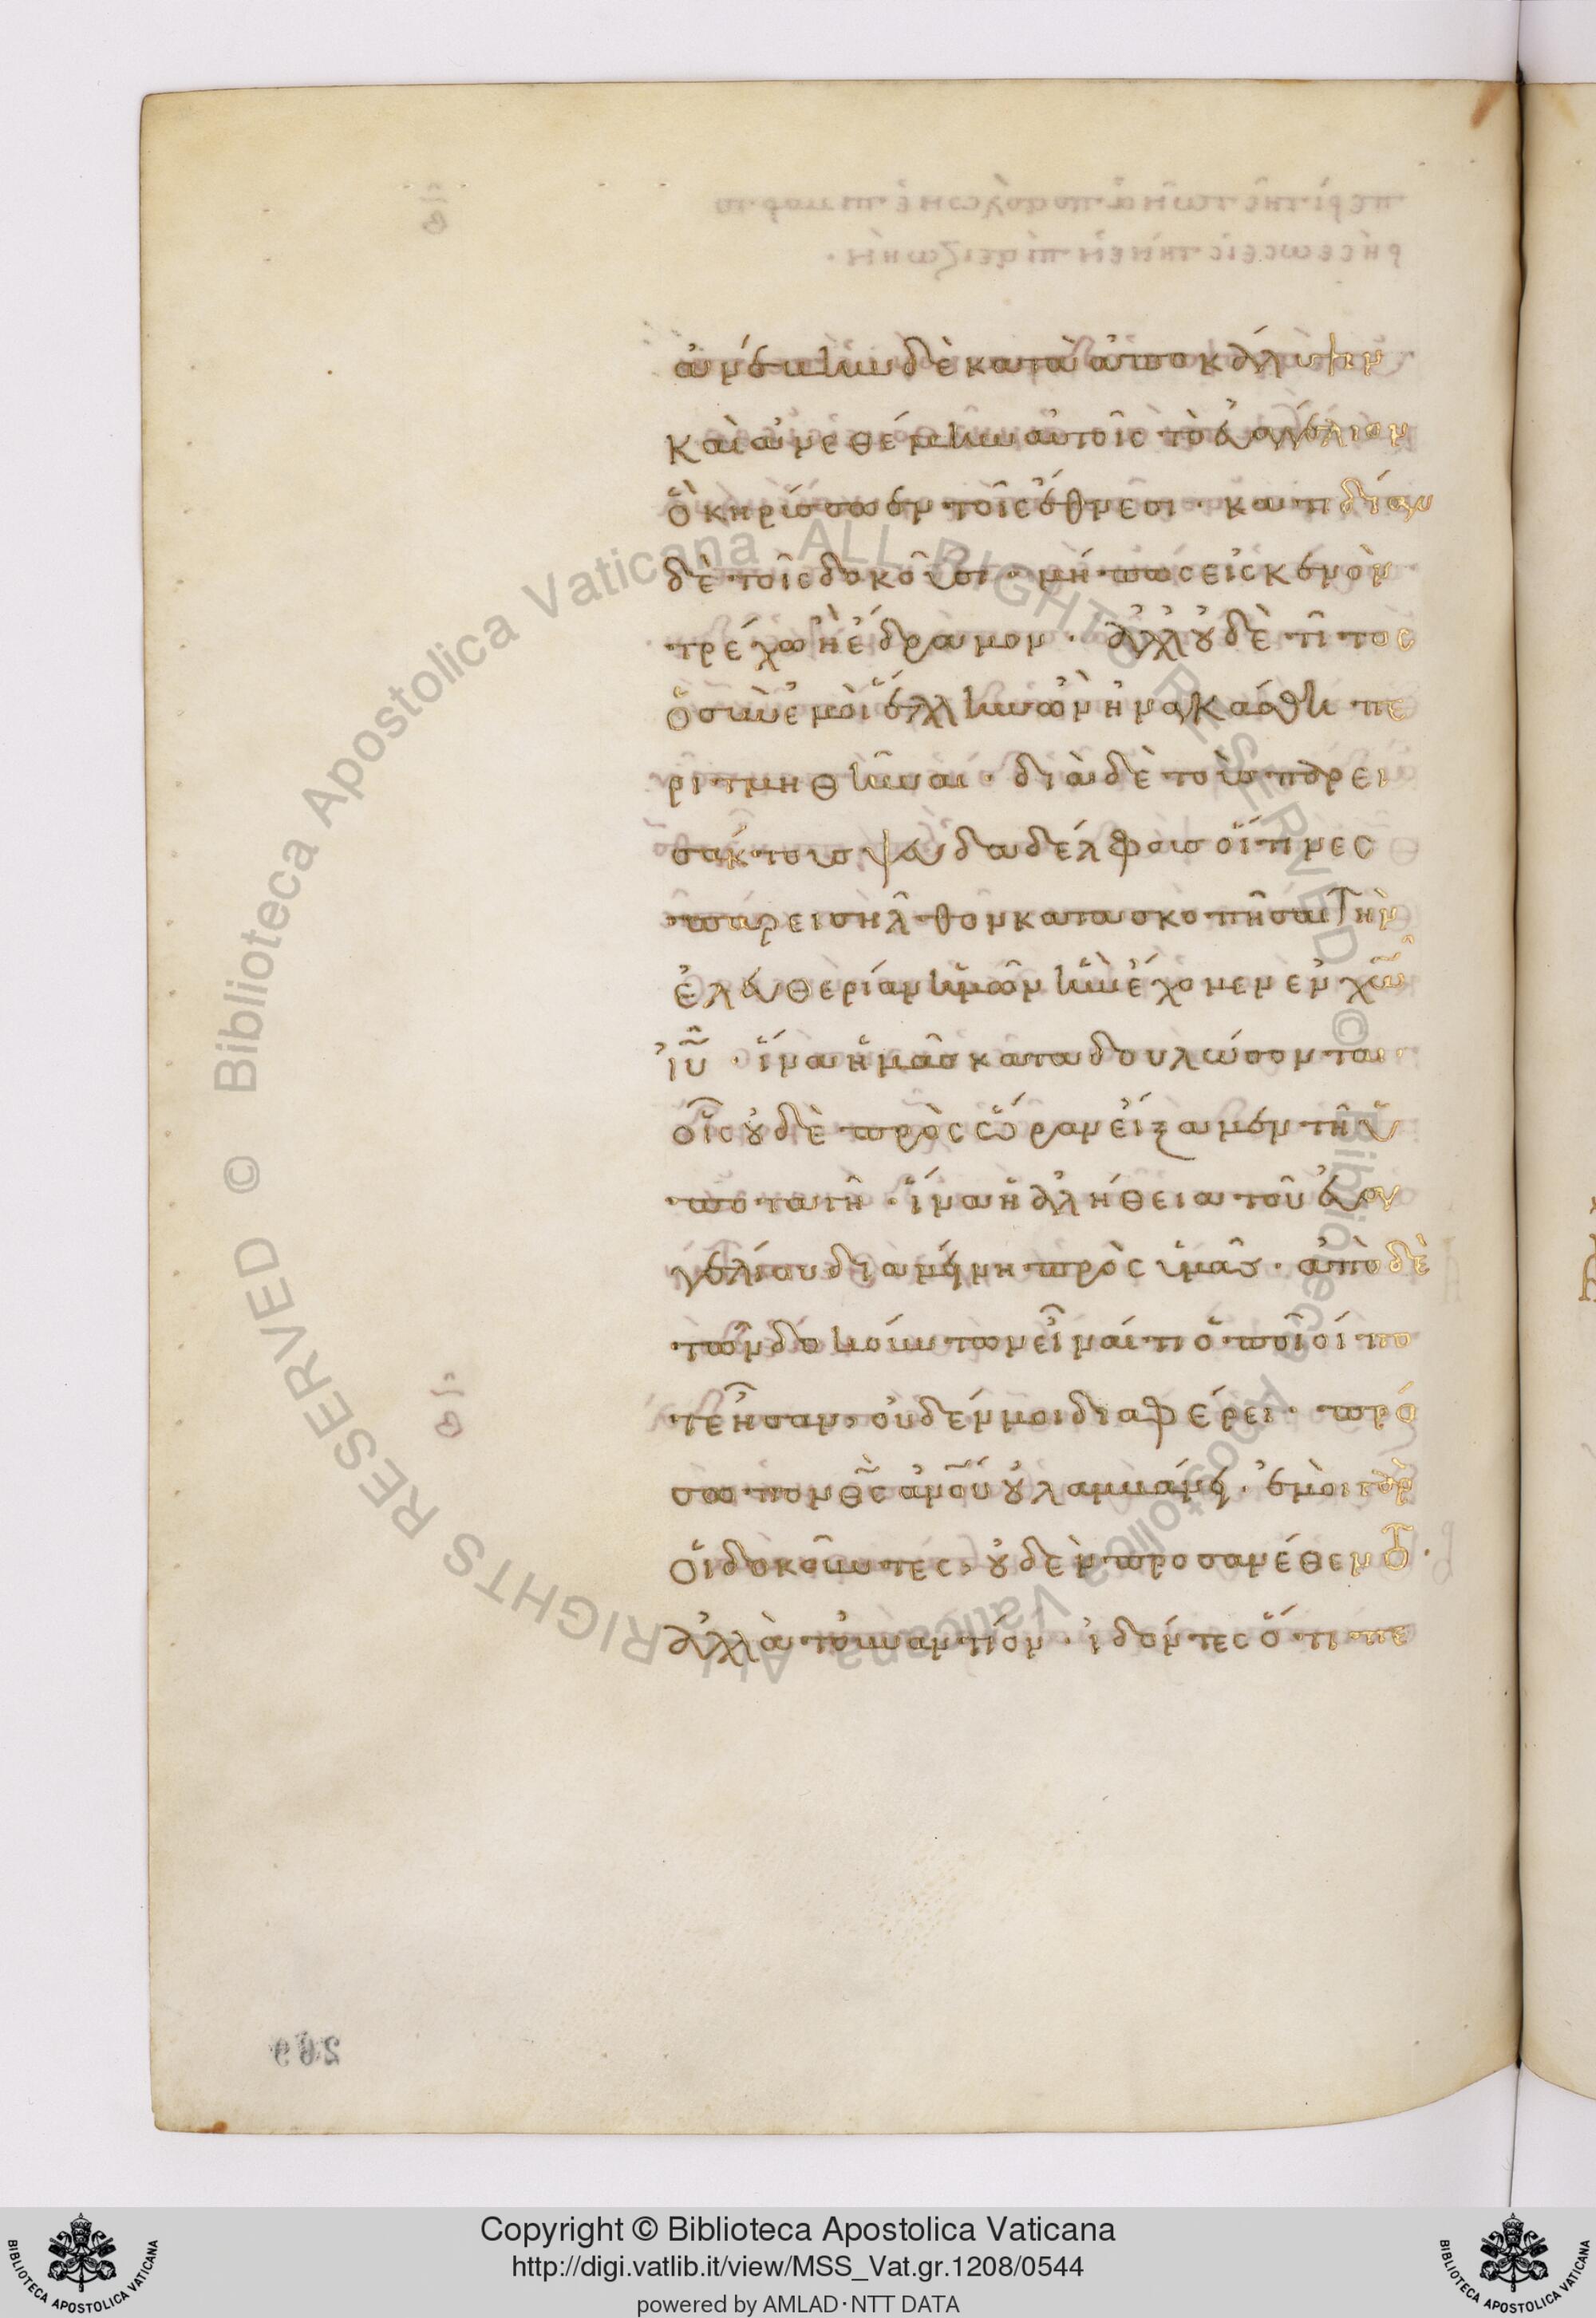 ἀνέβην δὲ κατὰ ἀποκάλυψιν
καὶ ἀνεθέμην αὐτοῖς τὸ εὐαγγέλιον
ὃ κηρύσσω ἐν τοῖς ἔθνεσι · κατιδίαν
δὲ τοῖς δοκοῦσι · μήπως εἰς κενὸν
τρέχω ἢ ἔδραμον · ἀλλ' οὐδὲ τίτος
ὁ σὺν ἐμοὶ ἕλλην ὢν ἠναγκάσθη πε
ριτμηθῆναι · διὰ δὲ τοὺς παρει
σάκτους ψευδαδέλφους οἵτινες
παρεισῆλθον κατασκοπῆσαι τὴν
ἐλευθερίαν ἡμῶν ἣν ἔχομεν ἐν χῶ
ἰῦ · ἵνα ἡμᾶς καταδουλώσονται
οἷς οὐδὲ πρὸς ὥραν εἴξαμεν τῇ ὑ
ποταγῇ · ἵνα ἡ ἀλήθεια τοῦ εὐαγ
γελίου διαμείνῃ πρὸς ὑμᾶς · ἀπὸ δὲ
τῶν δοκούντων εἶναί τι ὁποῖοί πο
τε ἦσαν, οὐδέν μοι διαφέρει · πρό
σωπον θς ἀνοῦ οὐ λαμβάνει · ἐμοὶ γὰρ
οἱ δοκοῦντες, οὐδὲν προσανέθεντο ·
ἀλλὰ τοὐναντίον · ἰδόντες ὅτι πε
269
Copyright © Biblioteca Apostolica Vaticana
http://digi.vatlib.it/view/MSS_Vat.gr.1208/0544
powered by AMLAD·NTT DATA
BIBLIOTECA APOSTOLICA VATICANA
BIBLIOTECA APOSTOLICA VATICANA
© Biblioteca Apostolica Vaticana ALL RIGHTS RESERVED
© Biblioteca Apostolica Vaticana ALL RIGHTS RESERVED